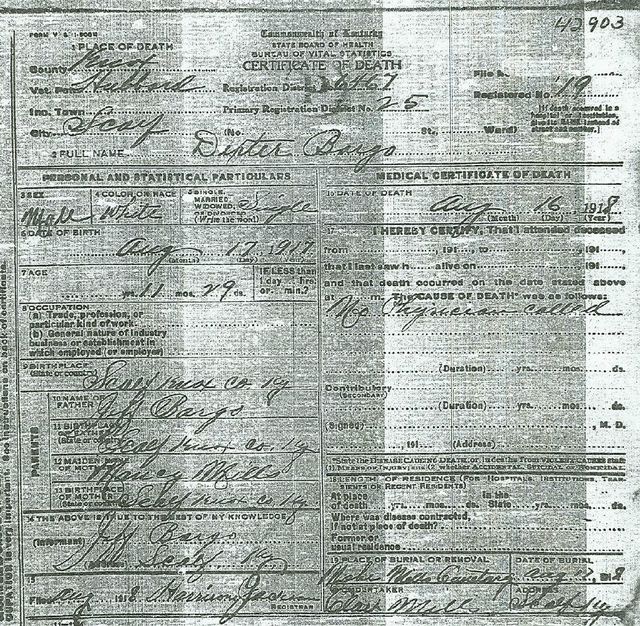 42903
FORM V. S. 1-500M
Commonwealth of Kentucky
STATE BOARD OF HEALTH
BUREAU OF VITAL STATISTICS
CERTIFICATE OF DEATH
1 PLACE OF DEATH
County Knox
Vot. Pct. Hubbard
Registration District 6467
File No.
Inc. Town
Primary Registration District No. 25
Registered No. 19
[If death occurred in a hospital or institution, give its NAME instead of street and number.]
City Scalf
(No. St., Ward)
2 FULL NAME Dexter Bargo
PERSONAL AND STATISTICAL PARTICULARS
3 SEX Male
4 COLOR OR RACE White
5 SINGLE, MARRIED, WIDOWED, OR DIVORCED (Write the word) Single
6 DATE OF BIRTH
Aug 17, 1917
(Month) (Day) (Year)
7 AGE
yrs. 11 mos. 29 ds.
IF LESS than 1 day hrs. or min.?
8 OCCUPATION
(a) Trade, profession, or particular kind of work
(b) General nature of industry business or establishment in which employed (or employer)
9 BIRTHPLACE (State or country)
Scalf Knox Co Ky
PARENTS
10 NAME OF FATHER Jeff Bargo
11 BIRTHPLACE OF FATHER (State or country) Scalf Knox Co. Ky
12 MAIDEN NAME OF MOTHER Nancy Mills
13 BIRTHPLACE OF MOTHER (State or country) Scalf Knox Co Ky
14 THE ABOVE IS TRUE TO THE BEST OF MY KNOWLEDGE
(Informant) Jeff Bargo
(Address) Scalf Ky
15
Filed Aug 1918 Harrison Jackson
REGISTRAR
MEDICAL CERTIFICATE OF DEATH
16 DATE OF DEATH
Aug 16, 1918
(Month) (Day) (Year)
17 I HEREBY CERTIFY, That I attended deceased
from 191 , to 191 ,
that I last saw h alive on 191 ,
and that death occurred on the date stated above
at m. The CAUSE OF DEATH* was as follows:
No Physician called
(Duration) yrs. mos. ds.
Contributory
(SECONDARY)
(Duration) yrs. mos. ds.
(Signed) , M. D.
, 191 (Address)
*State the DISEASE CAUSING DEATH, or, in deaths from VIOLENT CAUSES state (1) MEANS OF INJURY; and (2) whether ACCIDENTAL, SUICIDAL or HOMICIDAL.
18 LENGTH OF RESIDENCE (FOR HOSPITALS, INSTITUTIONS, TRANSIENTS OR RECENT RESIDENTS)
At place of death yrs. mos. ds. In the State yrs. mos. ds.
Where was disease contracted,
if not at place of death?
Former or
usual residence
19 PLACE OF BURIAL OR REMOVAL
DATE OF BURIAL
Mills Cemetery Aug 1918
20 UNDERTAKER
ADDRESS
Mills Scalf Ky